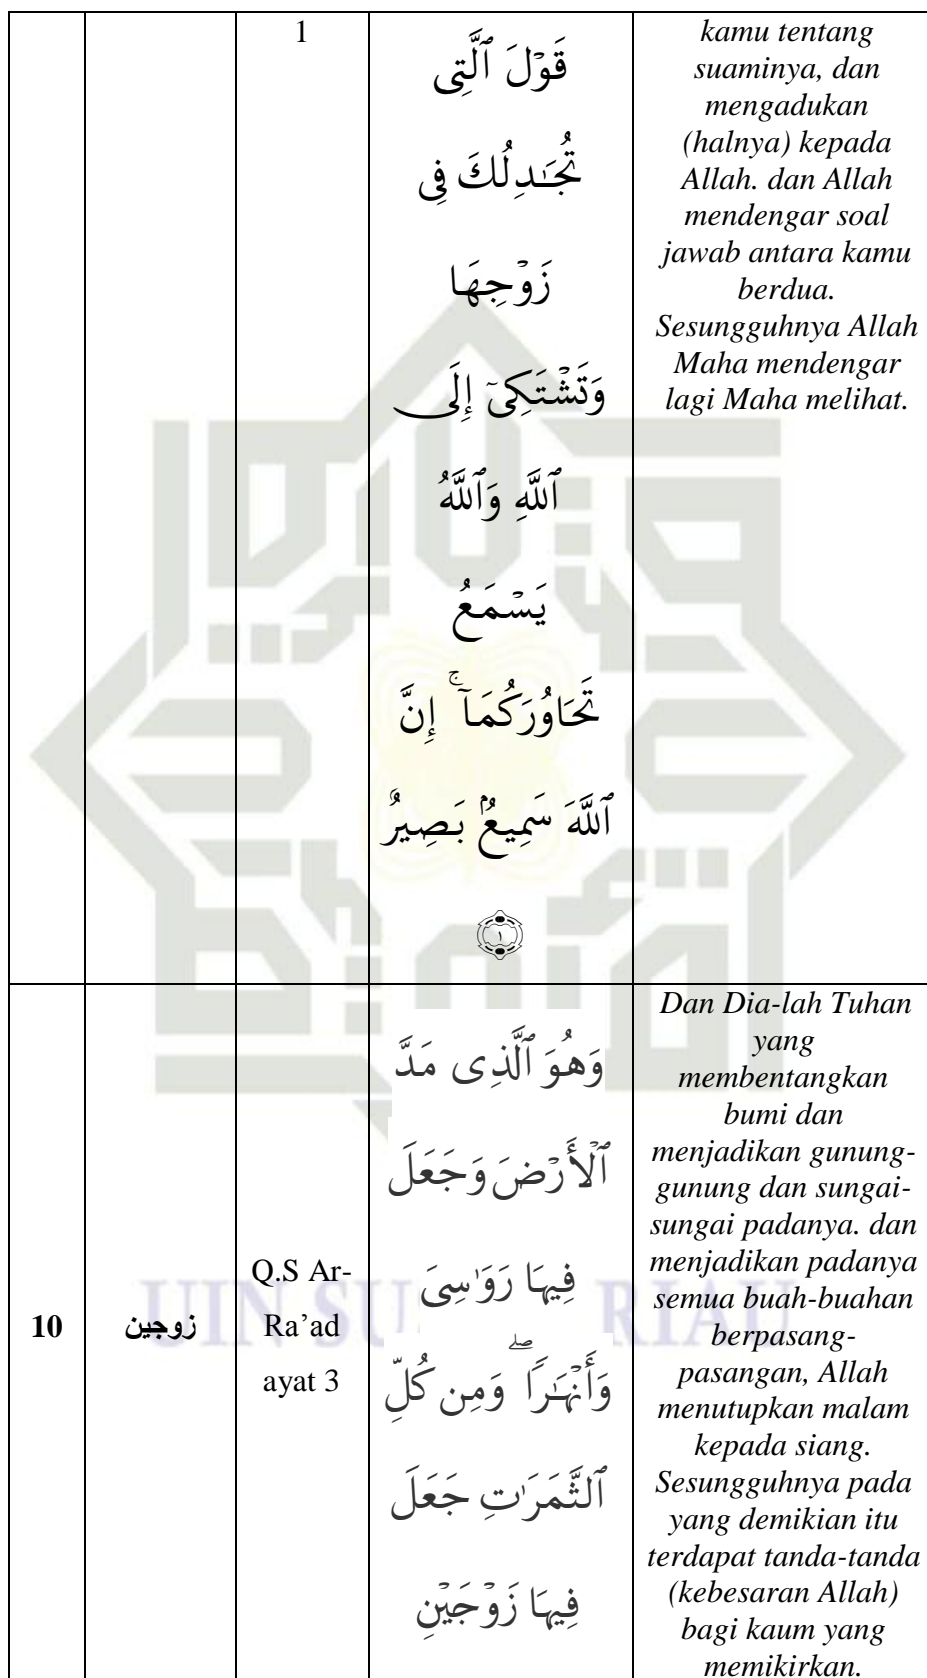 1
قَوْلَ ٱلَّتِى
تُجَـٰدِلُكَ فِى
زَوْجِهَا
وَتَشْتَكِىٓ إِلَى
ٱللَّهِ وَٱللَّهُ
يَسْمَعُ
تَحَاوُرَكُمَآ ۚ إِنَّ
ٱللَّهَ سَمِيعٌۢ بَصِيرٌ
١
kamu tentang
suaminya, dan
mengadukan
(halnya) kepada
Allah. dan Allah
mendengar soal
jawab antara kamu
berdua.
Sesungguhnya Allah
Maha mendengar
lagi Maha melihat.
10
زوجين
Q.S Ar-
Ra’ad
ayat 3
وَهُوَ ٱلَّذِى مَدَّ
ٱلْأَرْضَ وَجَعَلَ
فِيهَا رَوَٰسِىَ
وَأَنْهَـٰرًا ۖ وَمِن كُلِّ
ٱلثَّمَرَٰتِ جَعَلَ
فِيهَا زَوْجَيْنِ
Dan Dia-lah Tuhan
yang
membentangkan
bumi dan
menjadikan gunung-
gunung dan sungai-
sungai padanya. dan
menjadikan padanya
semua buah-buahan
berpasang-
pasangan, Allah
menutupkan malam
kepada siang.
Sesungguhnya pada
yang demikian itu
terdapat tanda-tanda
(kebesaran Allah)
bagi kaum yang
memikirkan.